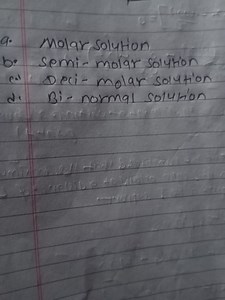 a. Molar solution
b. Semi-molar solution
c. Deci-molar solution
d. Bi-normal solution